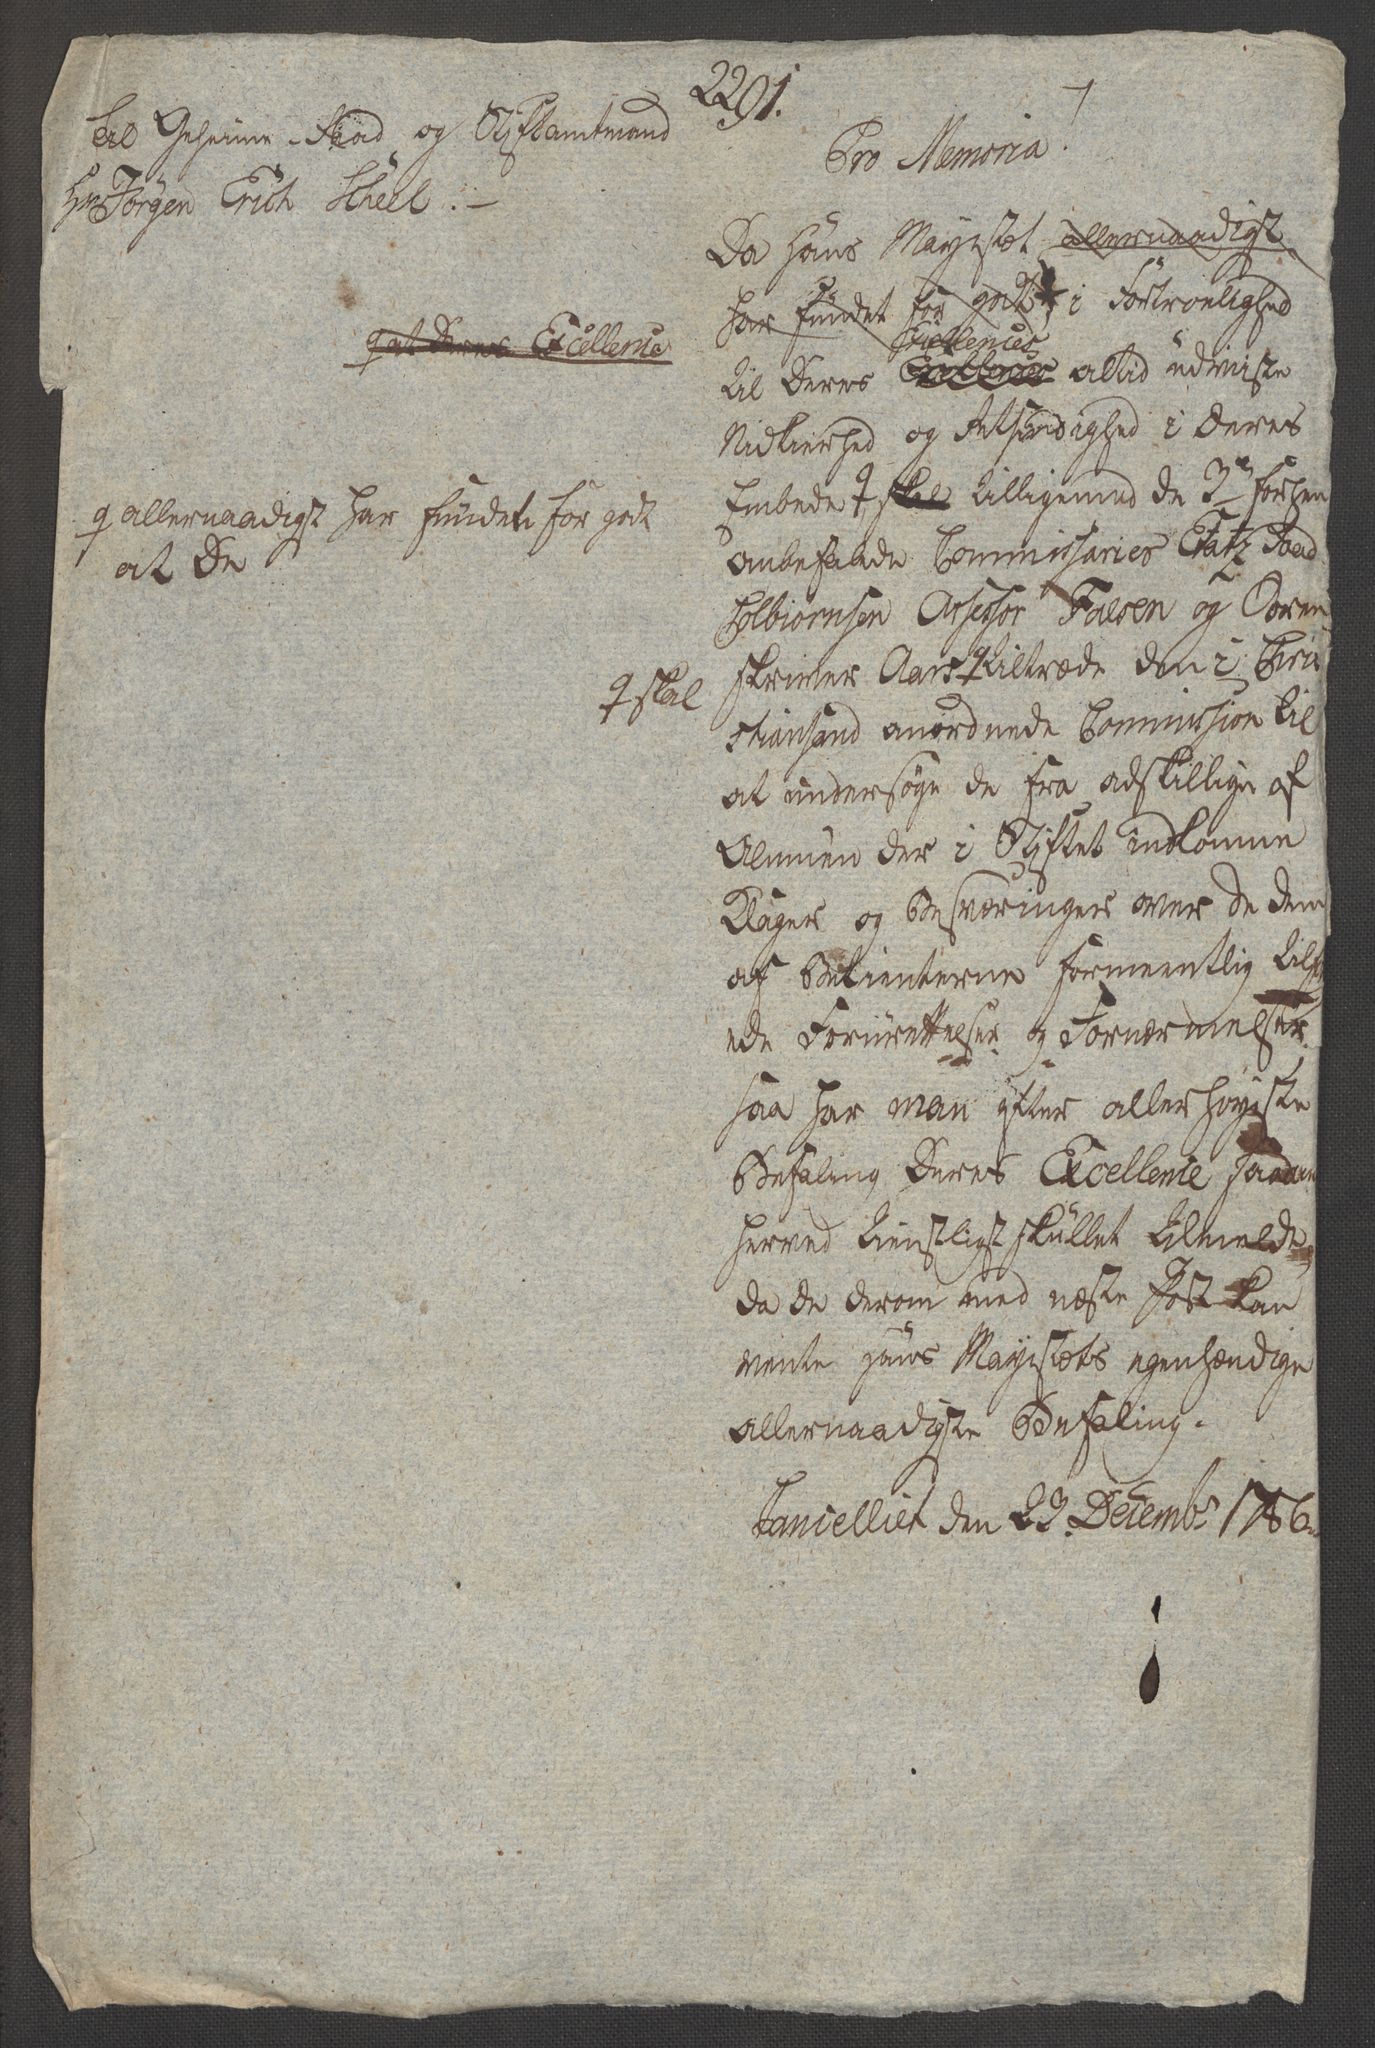 2291.
Til Geheime-Raad og Stiftamtmand
Hr Jørgen Erich Scheel.-
Pro Memoria!
Da Hans Mayestet allernaadigst
har fundet for godt i Fortroelighed
Excellences
til Deres Excellences altid udviste
Nidkierhed og Retsindighed i Deres
Embede skal tilligemed de 3de forhen
anbefalede Commissarier Etatz Raad
Colbiørnsen Assessor Falsen og Soren
skriver Aars tiltræde den i Chri
stiansand anordnede Commission til
at undersøge de fra adskillige af
Almuen der i Stiftet indkomne
Klager og Besværinger over de dem
af Betienterne formeentlig tilføy
ede Forurettelser og Fornærmelser.
saa har man efter allerhøyeste
Befaling Deres Excellence saadant
herved tienstligst skullet tilmelde,
da de derom med næste Post kan
vente Hans Mayestets egenhændige
allernaadigste Befaling.
Cancelliet den 23. Decembr 1786.
at Deres Excellence
allernaadigst har fundet for godt
at De
skal